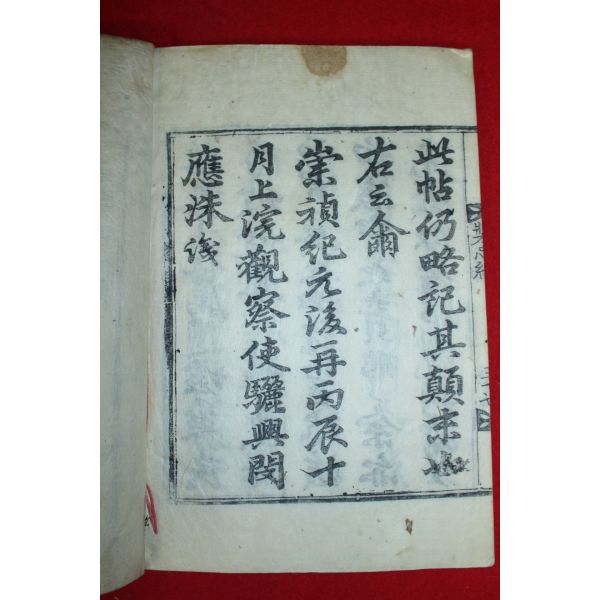 此帖仍略記其顚末如
右云爾
崇禎紀元後再丙辰十
月上浣觀察使驪興閔
應洙識